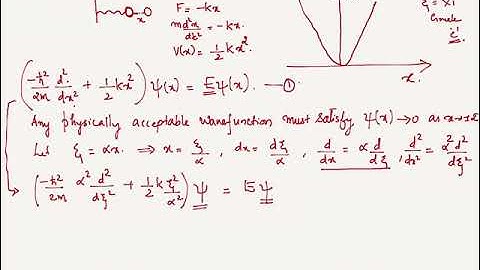 F = -kx
m d²x/dt² = -kx.
V(x) = 1/2 kx²
x
x.
(-ħ²/2m d²/dx² + 1/2 kx²) ψ(x) = Eψ(x). —①
Any physically acceptable wavefunction must satisfy ψ(x)→0 as x→±
Let ξ = αx. ⇒ x = ξ/α , dx = dξ/α , d/dx = α d/dξ , d²/dx² = α² d²/dξ²
(-ħ²/2m α² d²/dξ² + 1/2 k ξ²/α²) ψ = Eψ